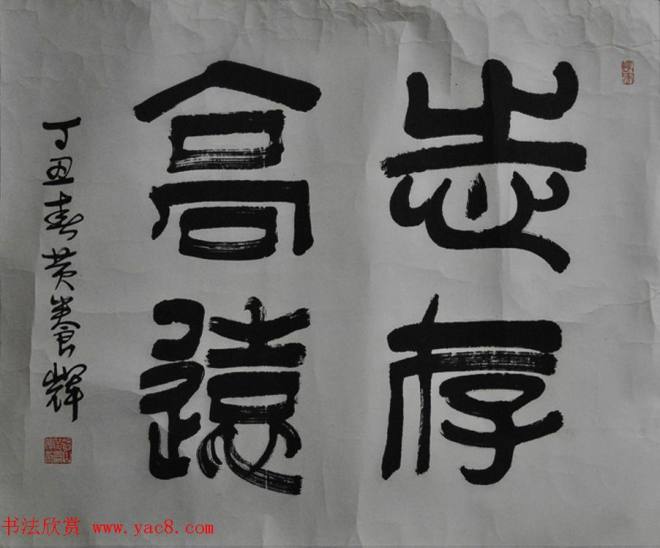 志存
高遠
丁丑春黄養輝
书法欣赏 www.yac8.com